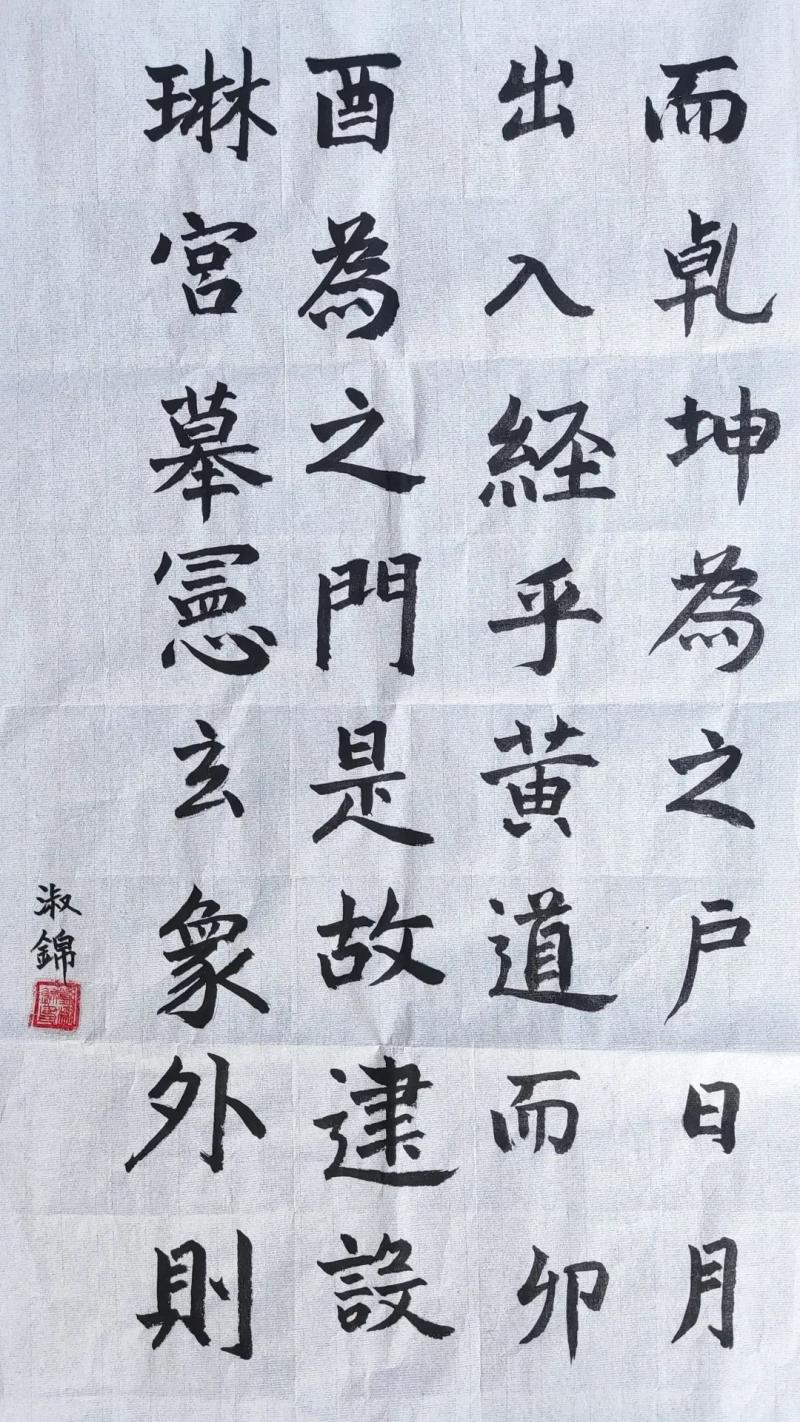 而乹坤為之户日月
出入経乎黄道而卯
酉為之門是故建設
琳宮摹憲玄象外則
淑錦